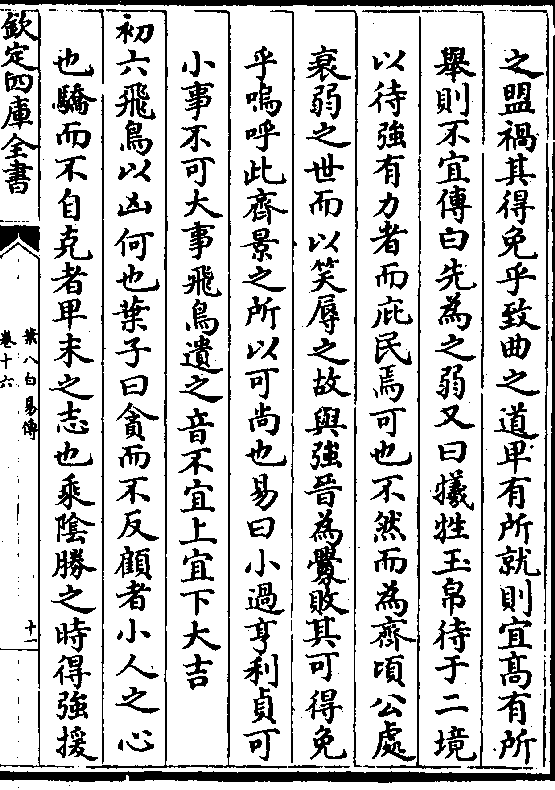 之盟禍其得免乎致曲之道甲有所就則宜髙有所
舉則不宜傳曰先為之弱又曰犧牲玉帛待于二境
以待強有力者而庇民焉可也不然而為齊頃公處
衰弱之世而以笑辱之故與強晉為釁敗其可得免
乎嗚呼此齊景之所以可尚也易曰小過亨利貞可
小事不可大事飛鳥遺之音不宜上宜下大吉
初六飛鳥以凶何也葉子曰貪而不反顧者小人之心
也驕而不自克者甲末之志也乘陰勝之時得強援
欽定四庫全書
葉八白易傳
卷十六
十一